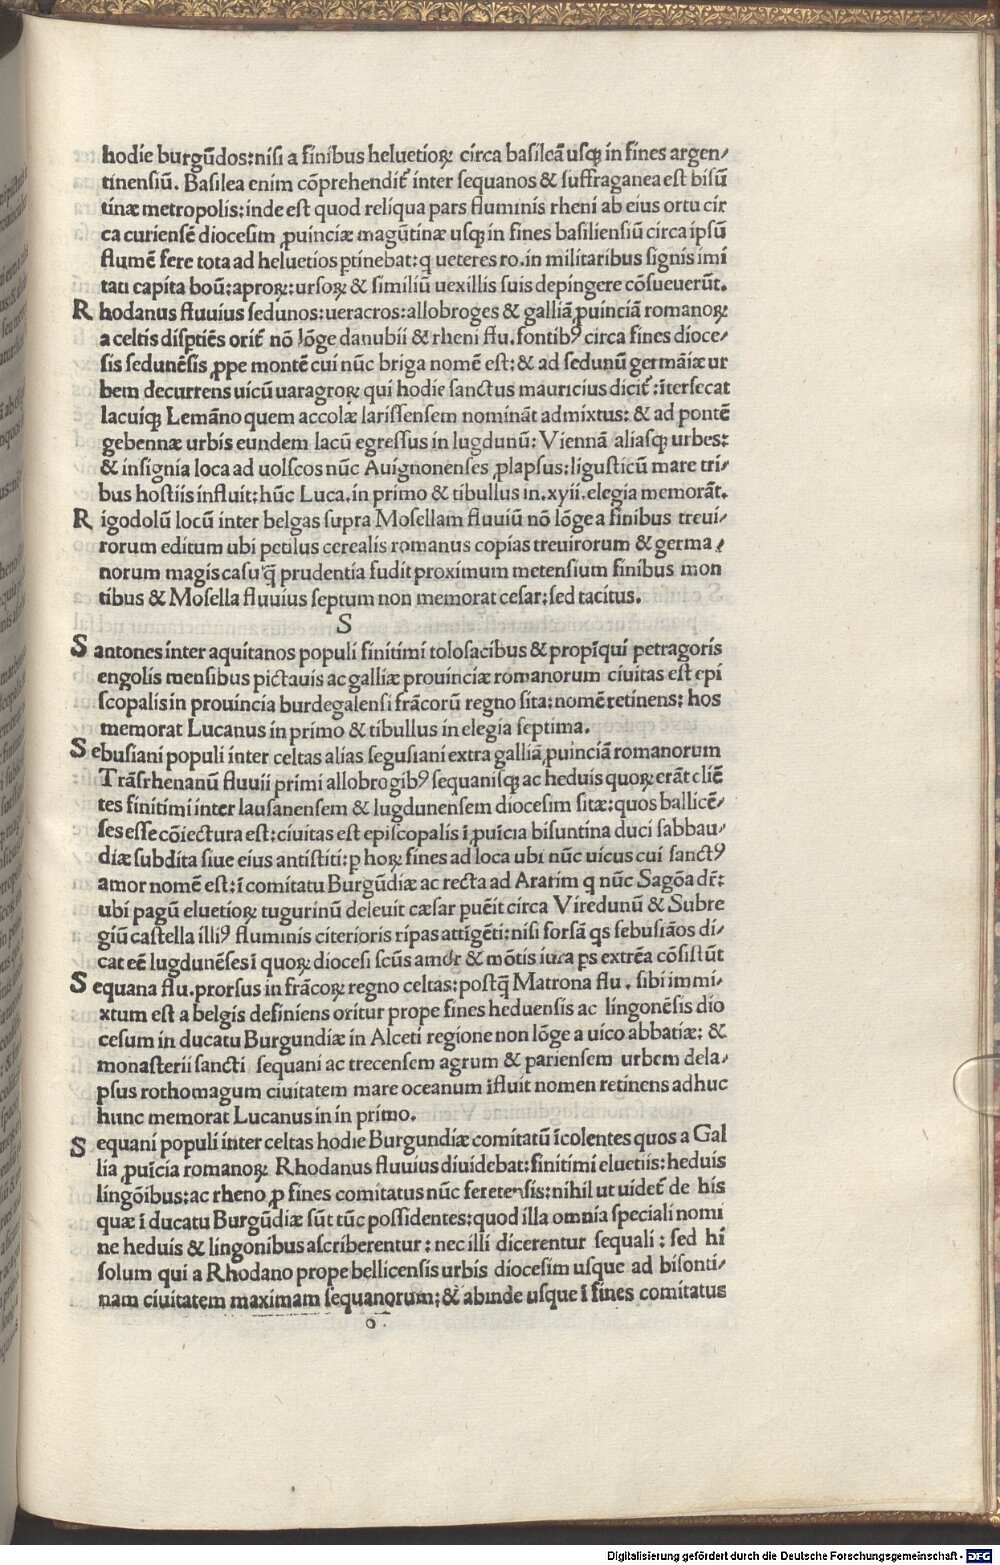 hodie burgūdos:nisi a finibus heluetioꝝ circa basileā usqꝫ in fines argen/
tinensiū. Basilea enim cōprehendit᷑ inter sequanos & suffraganea est bisū
tinæ metropolis:inde est quod reliqua pars fluminis rheni ab eius ortu cir
ca curiensē diocesim ꝓuinciæ magūtinæ usqꝫ in fines basiliensiū circa ipsū
flumē fere tota ad heluetios ꝑtinebat:q ueteres ro.in militaribus signis imi
tati capita boū:aproꝝ:ursoꝝ & similiū uexillis suis depingere cōsueuerūt.
R hodanus fluuius sedunos:ueracros:allobroges & galliā ꝓuinciā romanoꝝ
a celtis disꝑtiēs orit᷑ nō lōge danubii & rheni flu.fontibꝰ circa fines dioce/
sis sedunēsis ꝓpe montē cui nūc briga nomē est:& ad sedunū germāiæ ur
bem decurrens uicū uaragroꝝ qui hodie sanctus mauricius dicit᷑:ītersecat
lacuiqꝫ Lemāno quem accolæ larissensem nomināt admixtus:& ad pontē
gebennæ urbis eundem lacū egressus in lugdunū:Viennā aliasqꝫ urbes:
& insignia loca ad uolscos nūc Auignonenses ꝓlapsus:ligusticū mare tri/
bus hostiis influit:hūc Luca.in primo & tibullus in.xyii.elegia memorāt.
R igodolū locū inter belgas supra Mosellam fluuiū nō lōge a finibus treui/
rorum editum ubi petilus cerealis romanus copias treuirorum & germa/
norum magis casu q̄ prudentia fudit proximum metensium finibus mon
tibus & Mosella fluuius septum non memorat cesar:sed tacitus.
S
S antones inter aquitanos populi finitimi tolosacibus & propīqui petragoris
engolis mensibus pictauis ac galliæ prouinciæ romanorum ciuitas est epi
scopalis in prouincia burdegalensi frācorū regno sita:nomē retinens:hos
memorat Lucanus in primo & tibullus in elegia septima.
S ebusiani populi inter celtas alias segusiani extra galliā ꝓuinciā romanorum
Trāsrhenanū fluuii primi allobrogibꝰ sequanisqꝫ ac heduis quoꝝ erāt cliē
tes finitimi inter lausanensem & lugdunensem diocesim sitæ:quos ballicē/
ses esse cōiectura est:ciuitas est episcopalis ī ꝓuīcia bisuntina duci sabbau/
diæ subdita siue eius antistiti:ꝑ hoꝝ fines ad loca ubi nūc uicus cui sanctꝰ
amor nomē est:ī comitatu Burgūdiæ ac recta ad Ararim q nūc Sagōa dr̄:
ubi pagū eluetioꝝ tugurinū deleuit cæsar ꝑuēit circa Viredunū & Subre
giū castella illiꝰ fluminis citerioris ripas attīgēti:nisi forsā qs sebusiāos di/
cat eē lugdunēses ī quoꝝ diocesi scūs amor & mōtis iura ꝑs extrēa cōsistūt
S equana flu.prorsus in frācoꝝ regno celtas:postq̄ Matrona flu. sibi immi/
xtum est a belgis definiens oritur prope fines heduensis ac lingonēsis dio
cesum in ducatu Burgundiæ in Alceti regione non lōge a uico abbatiæ: &
monasterii sancti sequani ac trecensem agrum & pariensem urbem dela/
psus rothomagum ciuitatem mare oceanum īfluit nomen retinens adhuc
hunc memorat Lucanus in in primo.
S equani populi inter celtas hodie Burgundiæ comitatū īcolentes quos a Gal
lia ꝓuīcia romanoꝝ Rhodanus fluuius diuidebat:finitimi eluetiis:heduis
lingōibus:ac rheno ꝑ fines comitatus nūc feretensis:nihil ut uidet᷑ de his
quæ ī ducatu Burgūdiæ sūt tūc possidentes:quod illa omnia speciali nomi
ne heduis & lingonibus ascriberentur: nec illi dicerentur sequali: sed hi
solum qui a Rhodano prope bellicensis urbis diocesim usque ad bisonti/
nam ciuitatem maximam sequanorum:& abinde usque ī fines comitatus
o
Digitalisierung gefördert durch die Deutsche Forschungsgemeinschaft - DFG